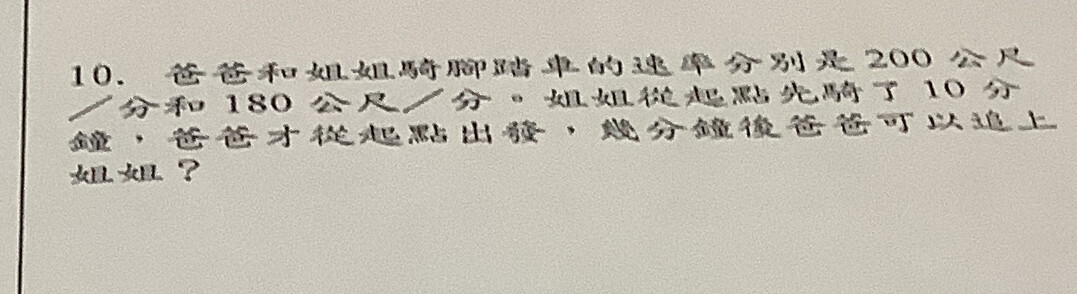 10. 爸爸和姐姐騎腳踏車的速率分別是 200 公尺
／分和 180 公尺／分。姐姐從起點先騎了 10 分
鐘，爸爸才從起點出發，幾分鐘後爸爸可以追上
姐姐？